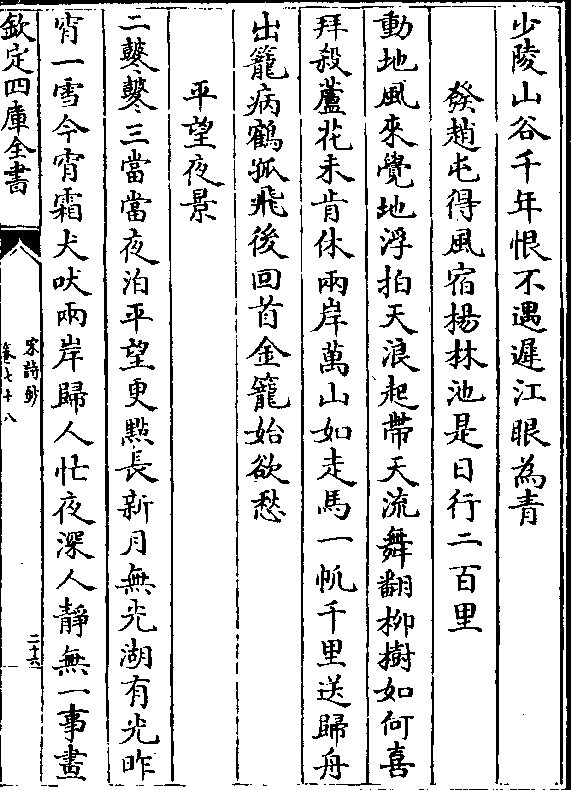 少陵山谷千年恨不遇遲江眼為青
發趙屯得風宿揚林池是日行二百里
動地風來覺地浮拍天浪起帶天流舞翻柳樹如何喜
拜殺蘆花未肯休兩岸萬山如走馬一㠶千里送歸舟
出籠病鶴孤飛後回首金籠始欲愁
平望夜景
二鼕鼕三當當夜泊平望更點長新月無光湖有光昨
宵一雪今宵霜犬吠兩岸歸人忙夜深人靜無一事畫
欽定四庫全書
宋詩鈔
卷七十八
二十六